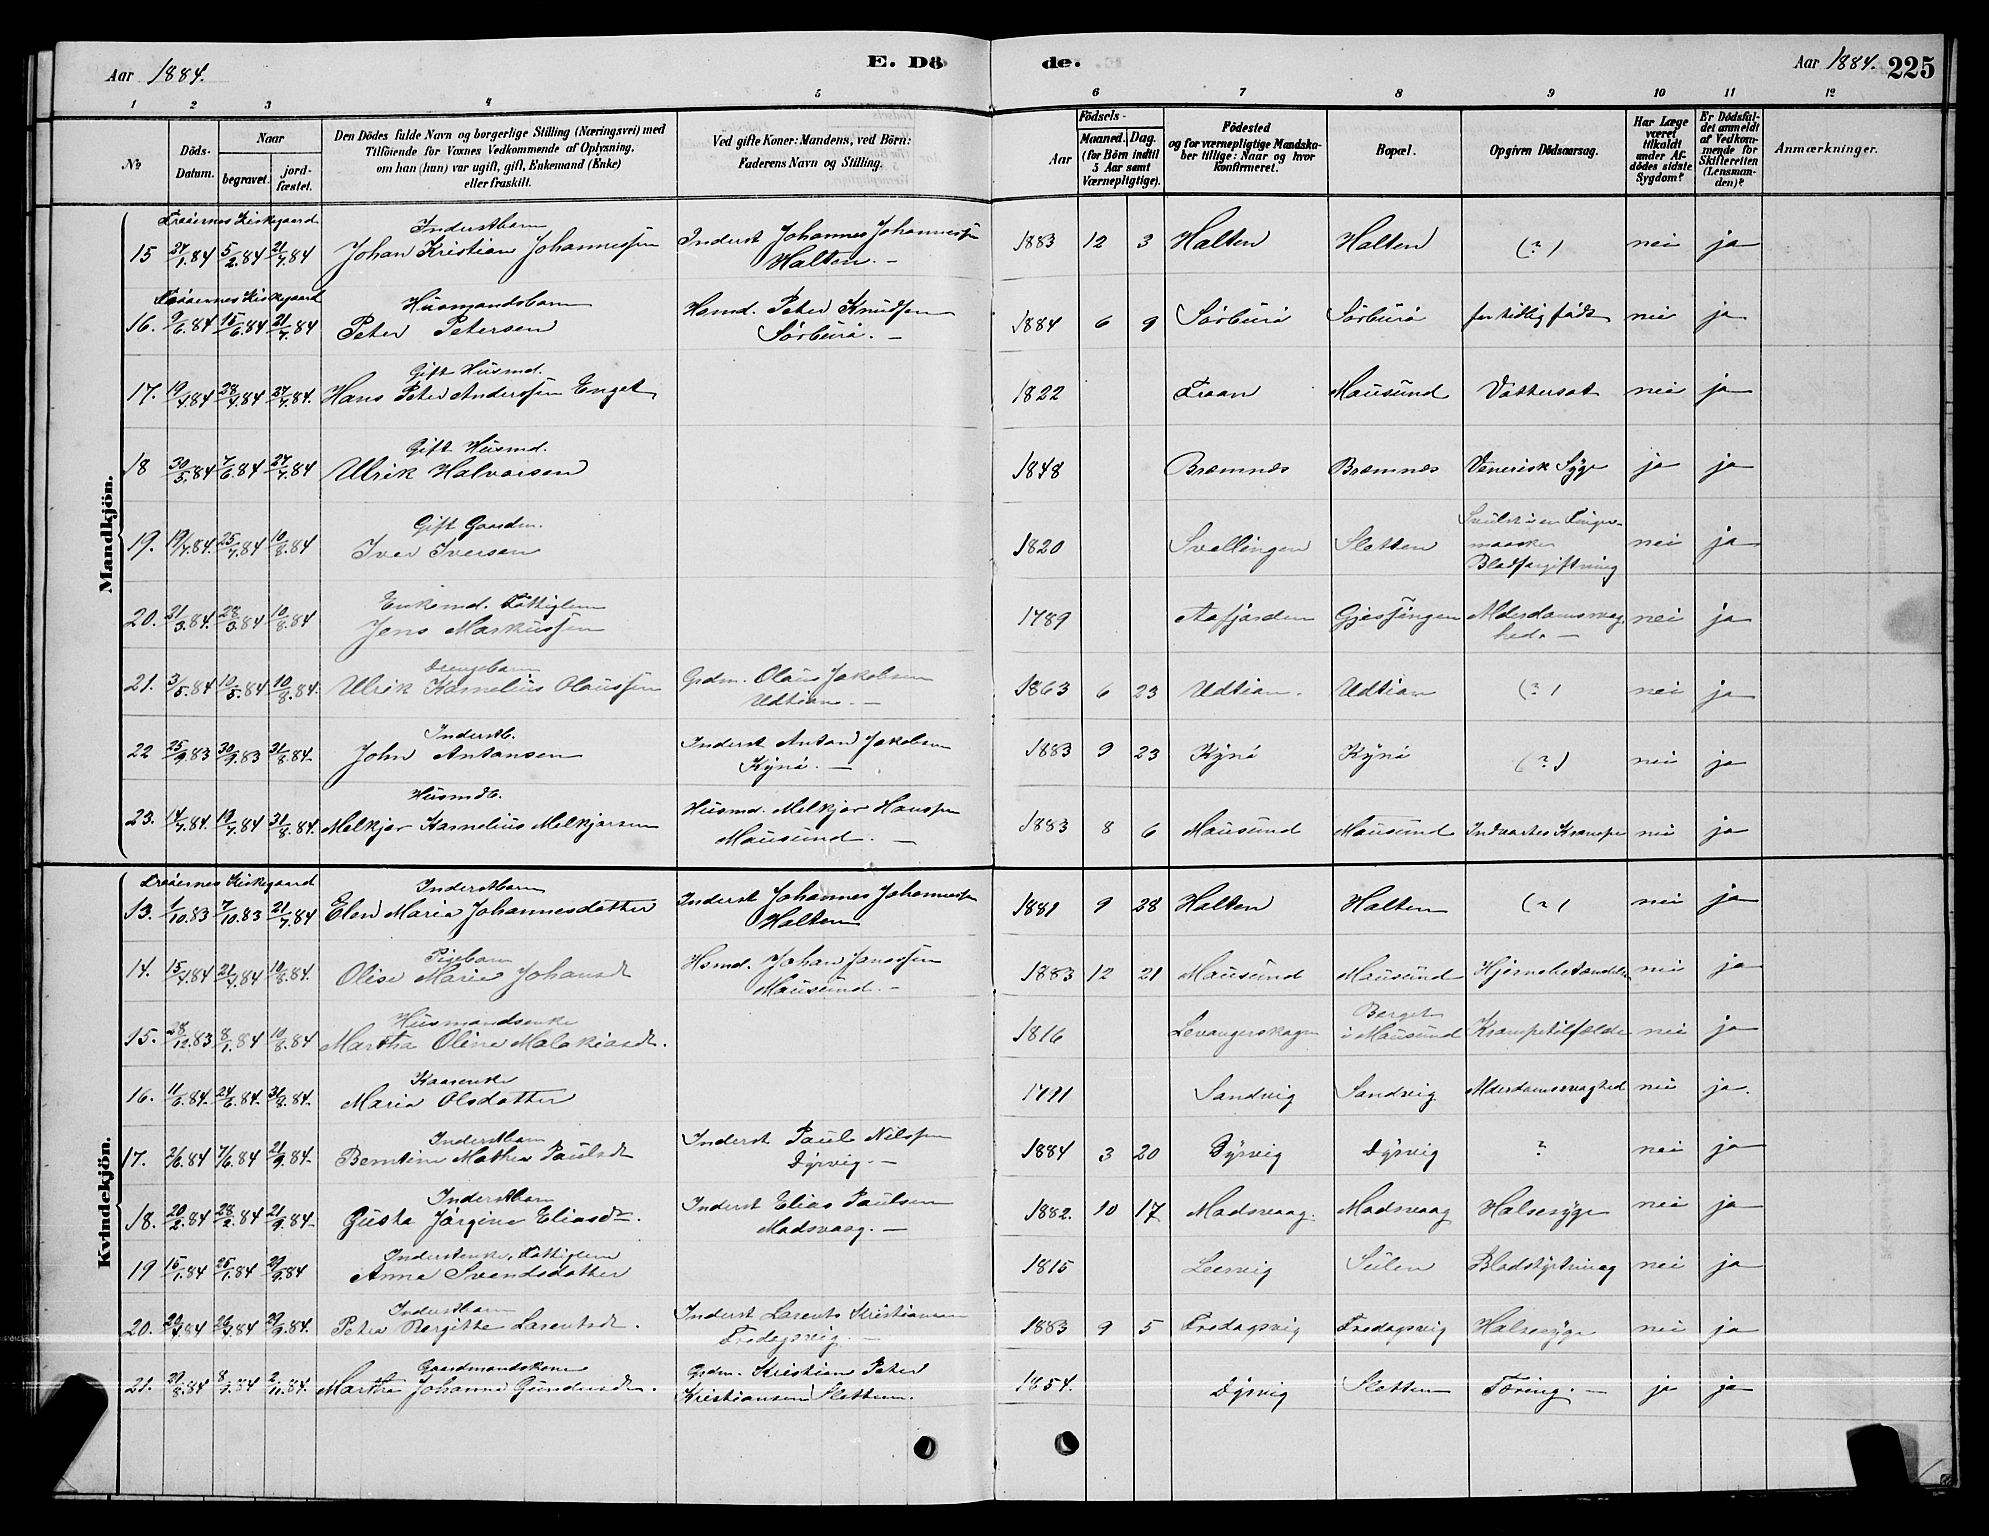 Aar 1884.
E. Dö
de.
Aar 1884. 225
1 2 3 4 5 6 7 8 9 10 11 12
No
Döds-Datum.
Naar
begravet.
jord-fæstet.
Den Dödes fulde Navn og borgerlige Stilling (Næringsvei) med
Tilföiende for Voxnes Vedkommende af Oplysning,
om han (hun) var ugift, gift, Enkemand (Enke)
eller fraskilt.
Ved gifte Koner: Mandens, ved Börn:
Faderens Navn og Stilling.
Födsels-
Aar
Maaned. Dag.
(for Börn indtil
3 Aar samt
Værnepligtige).
Födested
og for værnepligtige Mandska-
ber tillige: Naar og hvor
konfirmeret.
Bopæl.
Opgiven Dödsaarsag.
Har Læge
været
tilkaldt
under Af-
dödes sidste
Sygdom?
Er Dödsfal-
det anmeldt
af Vedkom-
mende for
Skifteretten
(Lensman-
den)?
Anmærkninger.
Mandkjön.
Froöernes Kirkegaard
Inderstbarn
15 27/1.84 5/2.84 21/7.84 Johan Kristian Johannessen Inderst Johannes Johannessen Halten. 1883 12 3 Halten Halten (?) nei ja
Froöernes Kirkegaard
Husmandsbarn
16. 9/6.84 15/6.84 21/7.84 Peter Petersen Hsmd. Peter Knudsen Sörburö. 1884 6 9 Sörburö Sörburö for tidlig födt nei ja
Gift Husmd.
17. 19/4.84 28/4.84 27/7.84. Hans Peter Anderssen Enget 1822 Froan Mausund Vattersot nei ja
Gift Husmd.
18 30/5.84 7/6.84 27/7.84 Ulrik Halvorsen 1848 Bremnes Bremnes Venerisk Syge ja ja
Gift Gaardm.
19. 19/7.84. 25/7.84 10/8.84 Iver Iversen 1820 Svellingen Sletten Svulst i en Finger maaske Blodforgiftning nei ja
Enkemd. Fattiglem
20. 21/3.84. 28/3.84 10/8.84 Jens Markussen 1789 Aafjorden Gjessingen Alderdomssvaghed. nei ja
Drengebarn
21. 3/5.84 10/5.84 10/8.84. Ulrik Kornelius Olaussen Grdm. Olaus Jakobsen Udtian. 1863 6 23 Udtian. Udtian (?) nei ja
Inderstb.
22 25/9.83 30/9.83 31/8.84. John Antonsen Inderst Anton Jakobsen Kynö. 1883 9 23 Kynö Kynö (?) nei ja
Husmdb.
23. 14/7.84. 19/7.84 31/8.84. Melkjor Kornelius Melkjorsen Husmd. Melkjor Hanssen Mausund. 1883 8 6 Mausund Mausund Indvortes Krampe nei ja
Kvindekjön.
Froöernes Kirkegaard
Inderstbarn
13. 1/10.83 7/10.83 21/7.84 Elen Maria Johannesdatter Inderst Johannes Johannessen Halten 1881 9 28 Halten Halten (?) nei ja
Pigebarn
14. 15/4.84 21/4.84 10/8.84. Olise Marie Johansdt Hsmd. Johan Jonassen Mausund. 1883 12 21 Mausund Mausund nei ja
Husmandsenke
15. 28/12.83 8/1.84 10/8.84 Martha Oline Malakiasdt. 1816 Levangerskogn Berget i Mausund Krampetilfælde nei ja
Kaarenke
16. 11/6.84. 24/6.84. 31/8.84. Maria Olsdatter 1791 Sandvig Sandvig Alderdomssvaghed nei ja.
Inderstbarn
17. 2/6.84 7/6.84 21/9.84. Berntine Mathea Paulsdt Inderst Paul Nilssen Dyrvig. 1884 3 20 Dyrvig Dyrvig ? nei ja
Inderstbarn
18. 20/2.84 28/2.84 21/9.84. Gusta Jörgine Eliasdt. Inderst Elias Paulsen Madsvaag. 1882. 10 17 Madsvaag. Madsvaag Halsesyge nei ja
Inderstenke, Fattiglem
19 15/1.84 25/1.84 21/9.84 Anna Svendsdatter 1815 Leervig Sulen Blodstyrtning nei ja
Inderstbarn
20. 20/4.84 26/4.84 21/9.84. Petra Bergitte Larentsdt. Inderst Larents Kristiansen Fredagsvig. 1883 9 5 Fredagsvig Fredagsvig Halsesyge nei ja
Gaardmandskone
21. 29/8.84 2/11.84. Martha Johanna Gundersdt. Grdm. Kristian Peter Kristiansen Sletten. 1854. Dyrvig Sletten Tæring. ja ja